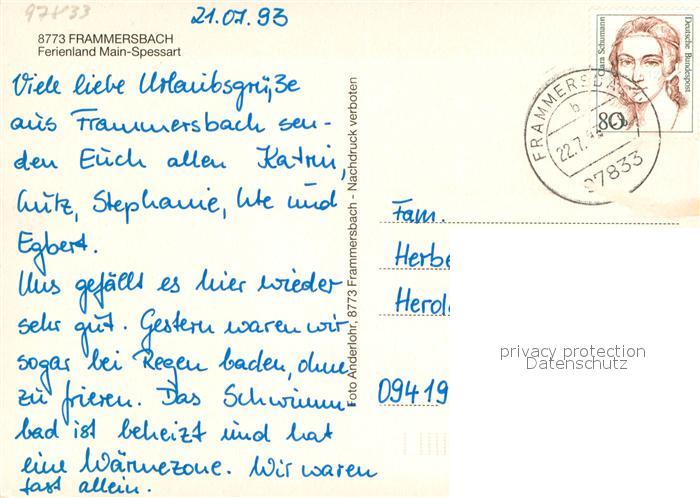 97833
21.07.93
8773 FRAMMERSBACH
Ferienland Main-Spessart
Viele liebe Urlaubsgrüße
aus Frammersbach sen-
den Euch allen Katrin,
Lutz, Stephanie, Ute und
Egbert.
Uns gefällt es hier wieder
sehr gut. Gestern waren wir
sogar bei Regen baden, ohne
zu frieren. Das Schwimm-
bad ist beheizt und hat
eine Wärmezone. Wir waren
fast allein.
Foto Anderlohr, 8773 Frammersbach - Nachdruck verboten
Clara Schumann
Deutsche Bundespost
80
FRAMMERSBACH
b
22.7.93
97833
Fam.
Herbe
Herol
09419
privacy protection
Datenschutz